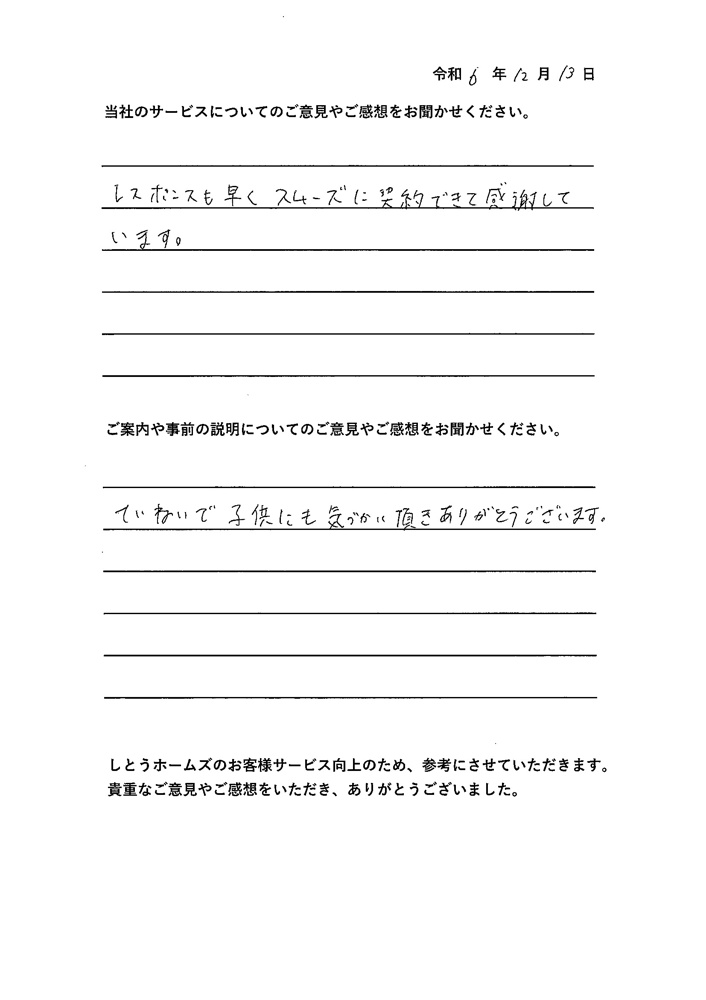 令和 6 年 12 月 13 日
当社のサービスについてのご意見やご感想をお聞かせください。
レスポンスも早く スムーズに契約できて感謝して
います。
ご案内や事前の説明についてのご意見やご感想をお聞かせください。
ていねいで 子供にも気づかい頂きありがとうございます。
しとうホームズのお客様サービス向上のため、参考にさせていただきます。
貴重なご意見やご感想をいただき、ありがとうございました。